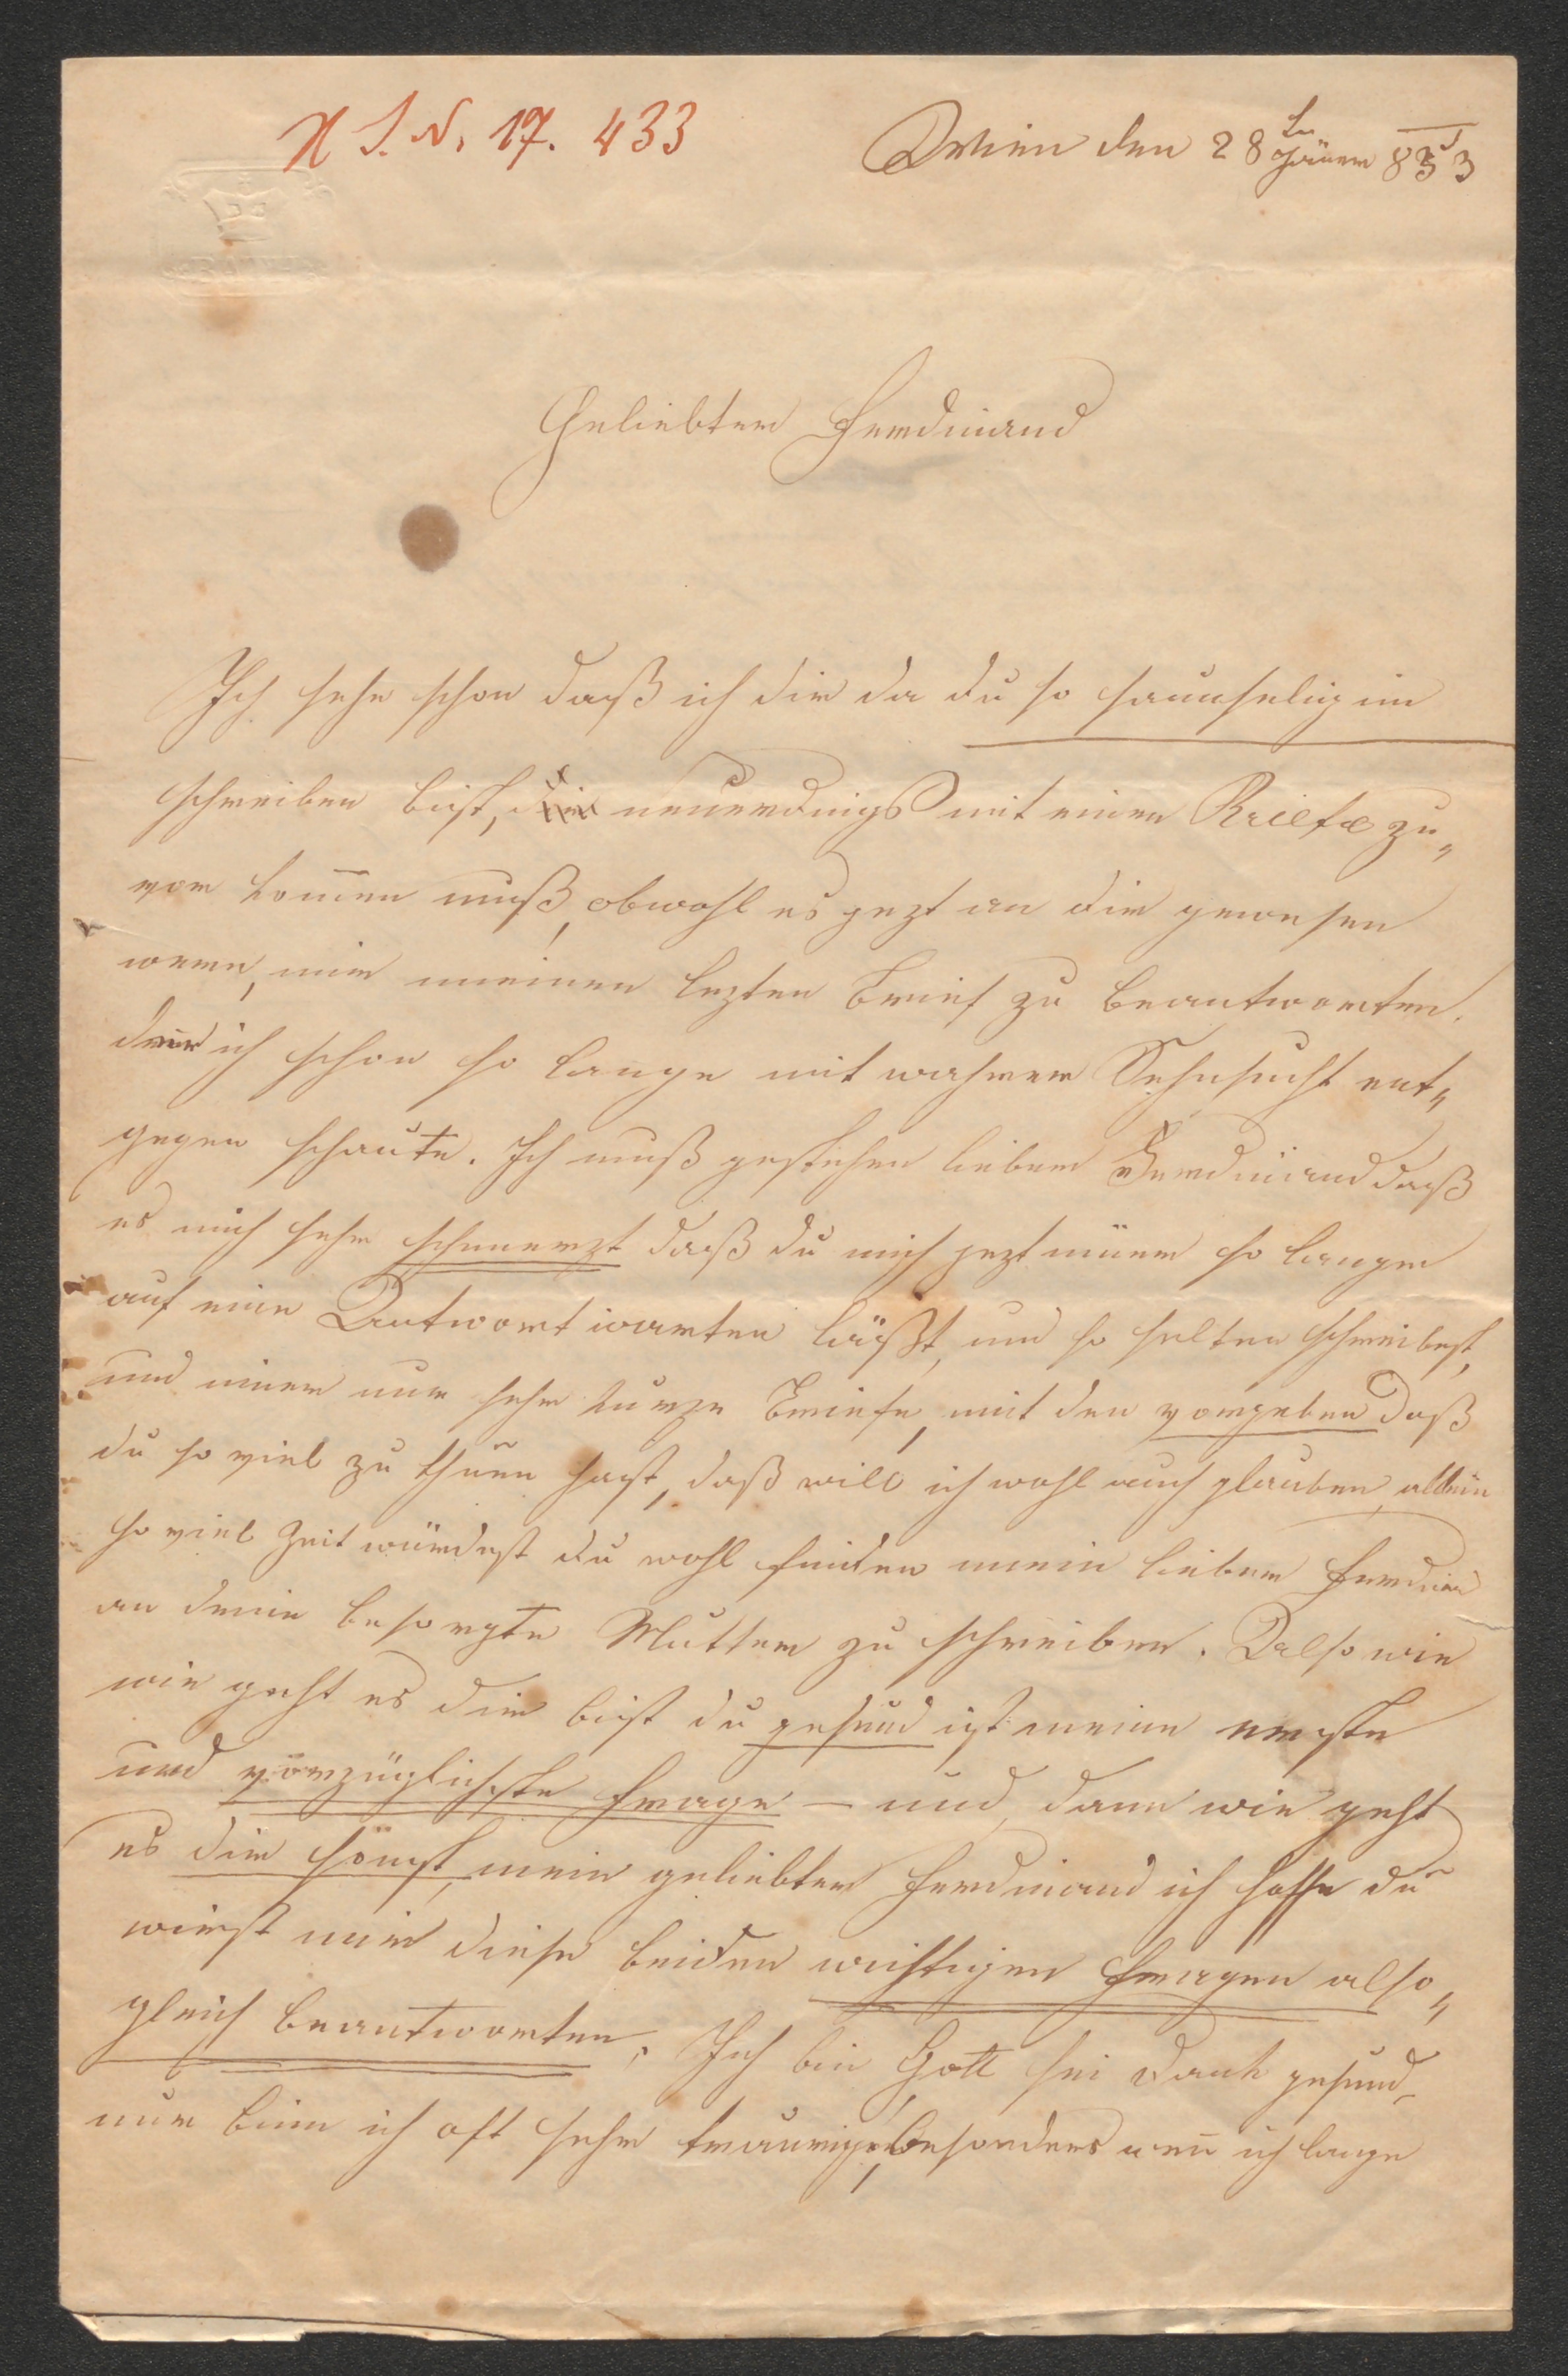 H I. N. 17. 433
Wien den 28ten Jäner 853
Geliebter Ferdinand
Ich sehe schon daß ich dir da du so saumselig im
schreiben bist, dir neuerdings mit einen Briefe zu„
vor kom̄en muß, obwohl es jezt an dir gewesen
were, mir meinen lezten Brief zu beantworten.
den ich schon so lange mit wahrer Sehnsucht ent„
gegen schaute. Ich muß gestehen lieber Ferdinand daß
es mich sehr schmerzt daß du mich jezt im̄er so lange
auf eine Antwort warten läßt, und so selten schreibest,
und im̄er nur sehr kurze Briefe, mit den vorgeben daß
du so viel zu thun hast, daß will ich wohl auch glauben, allein
so viel Zeit würdest du wohl finden mein lieber Ferdinand
an deine besorgte Mutter zu schreiben. Also wie
wie geht es dir bist du gesund ist meine erste
und vorzüglichste Frage – und dann wie geht
es dir sonst, mein geliebter Ferdinand ich hoffe du
wirst mir diese beiden wichtigen Fragen also„
gleich beantworten. Ich bin Gott sei Dank gesund
nur binn ich oft sehr traurig, besonders wen̄ ich lange